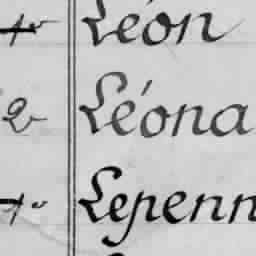 Léon
2 Léona
Lepenn